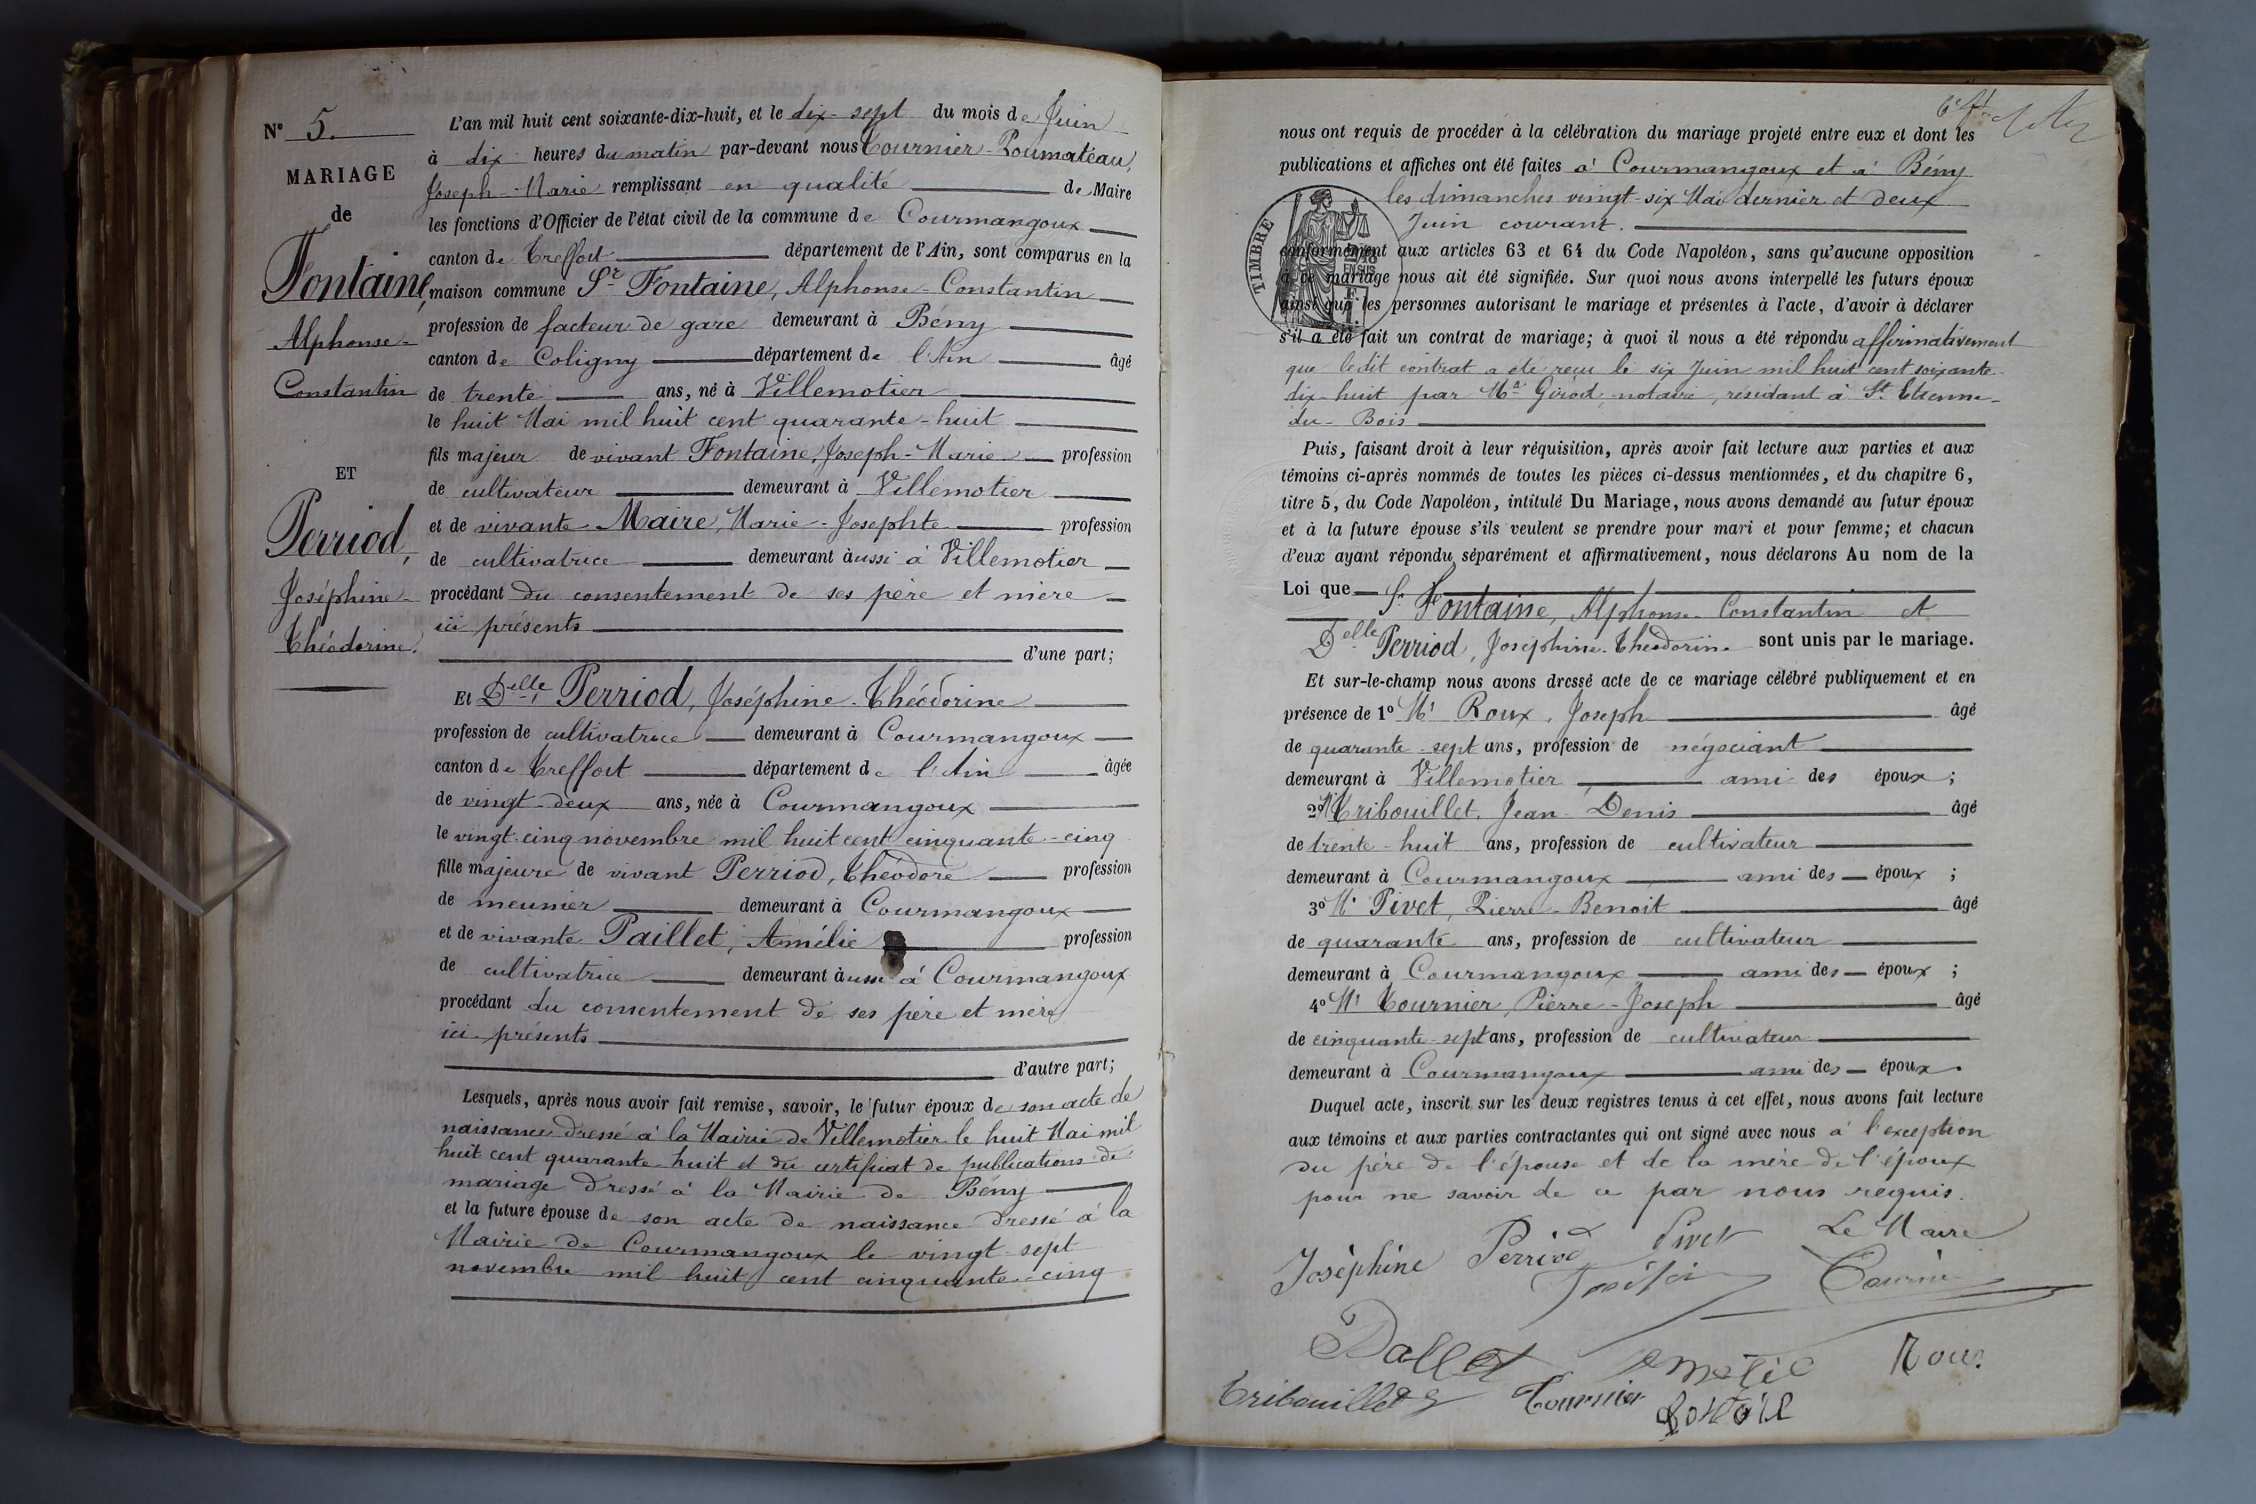 N° 5.
MARIAGE
de
Fontaine,
Alphonse-
Constantin
ET
Perriod,
Joséphine-
Théodorine.
L'an mil huit cent soixante-dix-huit, et le dix-sept du mois de Juin
à dix heures du matin par-devant nous Tournier-Poumatéau,
Joseph-Marie remplissant en qualité de Maire
les fonctions d'Officier de l'état civil de la commune de Courmangoux
canton de Treffort département de l'Ain, sont comparus en la
maison commune Sr Fontaine, Alphonse-Constantin
profession de facteur de gare demeurant à Bény
canton de Coligny département de l'Ain âgé
de trente ans, né à Villemotier
le huit Mai mil huit cent quarante-huit
fils majeur de vivant Fontaine, Joseph-Marie profession
de cultivateur demeurant à Villemotier
et de vivante Maire, Marie-Josephte profession
de cultivatrice demeurant aussi à Villemotier
procédant du consentement de ses père et mère
ici présents
d'une part;
Et Delle Perriod, Joséphine-Théodorine
profession de cultivatrice demeurant à Courmangoux
canton de Treffort département de l'Ain âgée
de vingt-deux ans, née à Courmangoux
le vingt-cinq novembre mil huit cent cinquante-cinq
fille majeure de vivant Perriod, Théodore profession
de meunier demeurant à Courmangoux
et de vivante Paillet, Amélie profession
de cultivatrice demeurant aussi à Courmangoux
procédant du consentement de ses père et mère
ici présents
d'autre part;
Lesquels, après nous avoir fait remise, savoir, le futur époux de son acte de
naissance dressé à la Mairie de Villemotier le huit Mai mil
huit cent quarante-huit et du certificat de publications de
mariage dressé à la Mairie de Bény
et la future épouse de son acte de naissance dressé à la
Mairie de Courmangoux le vingt-sept
novembre mil huit cent cinquante-cinq
nous ont requis de procéder à la célébration du mariage projeté entre eux et dont les
publications et affiches ont été faites à Courmangoux et à Bény
les dimanches vingt-six Mai dernier et deux
Juin courant.
TIMBRE
conformément aux articles 63 et 64 du Code Napoléon, sans qu'aucune opposition
à ce mariage nous ait été signifiée. Sur quoi nous avons interpellé les futurs époux
ainsi que les personnes autorisant le mariage et présentes à l'acte, d'avoir à déclarer
s'il a été fait un contrat de mariage; à quoi il nous a été répondu affirmativement
que ledit contrat a été reçu le six Juin mil huit cent soixante-
dix-huit par Me Girod, notaire, résidant à St Etienne-
du-Bois
Puis, faisant droit à leur réquisition, après avoir fait lecture aux parties et aux
témoins ci-après nommés de toutes les pièces ci-dessus mentionnées, et du chapitre 6,
titre 5, du Code Napoléon, intitulé Du Mariage, nous avons demandé au futur époux
et à la future épouse s'ils veulent se prendre pour mari et pour femme; et chacun
d'eux ayant répondu séparément et affirmativement, nous déclarons Au nom de la
Loi que Sr Fontaine, Alphonse-Constantin et
Delle Perriod, Joséphine-Théodorine sont unis par le mariage.
Et sur-le-champ nous avons dressé acte de ce mariage célébré publiquement et en
présence de 1° Mr Roux, Joseph âgé
de quarante-sept ans, profession de négociant
demeurant à Villemotier ami des époux;
2° Mr Tribouillet, Jean-Denis âgé
de trente-huit ans, profession de cultivateur
demeurant à Courmangoux ami des époux;
3° Mr Pivet, Pierre-Benoit âgé
de quarante ans, profession de cultivateur
demeurant à Courmangoux ami des époux;
4° Mr Tournier, Pierre-Joseph âgé
de cinquante-sept ans, profession de cultivateur
demeurant à Courmangoux ami des époux.
Duquel acte, inscrit sur les deux registres tenus à cet effet, nous avons fait lecture
aux témoins et aux parties contractantes qui ont signé avec nous à l'exception
du père de l'épouse et de la mère de l'époux
pour ne savoir de ce par nous requis.
Joséphine Perriod Pivet Le Maire
Tournie
Amélie Roux
Tribouillet Tournier